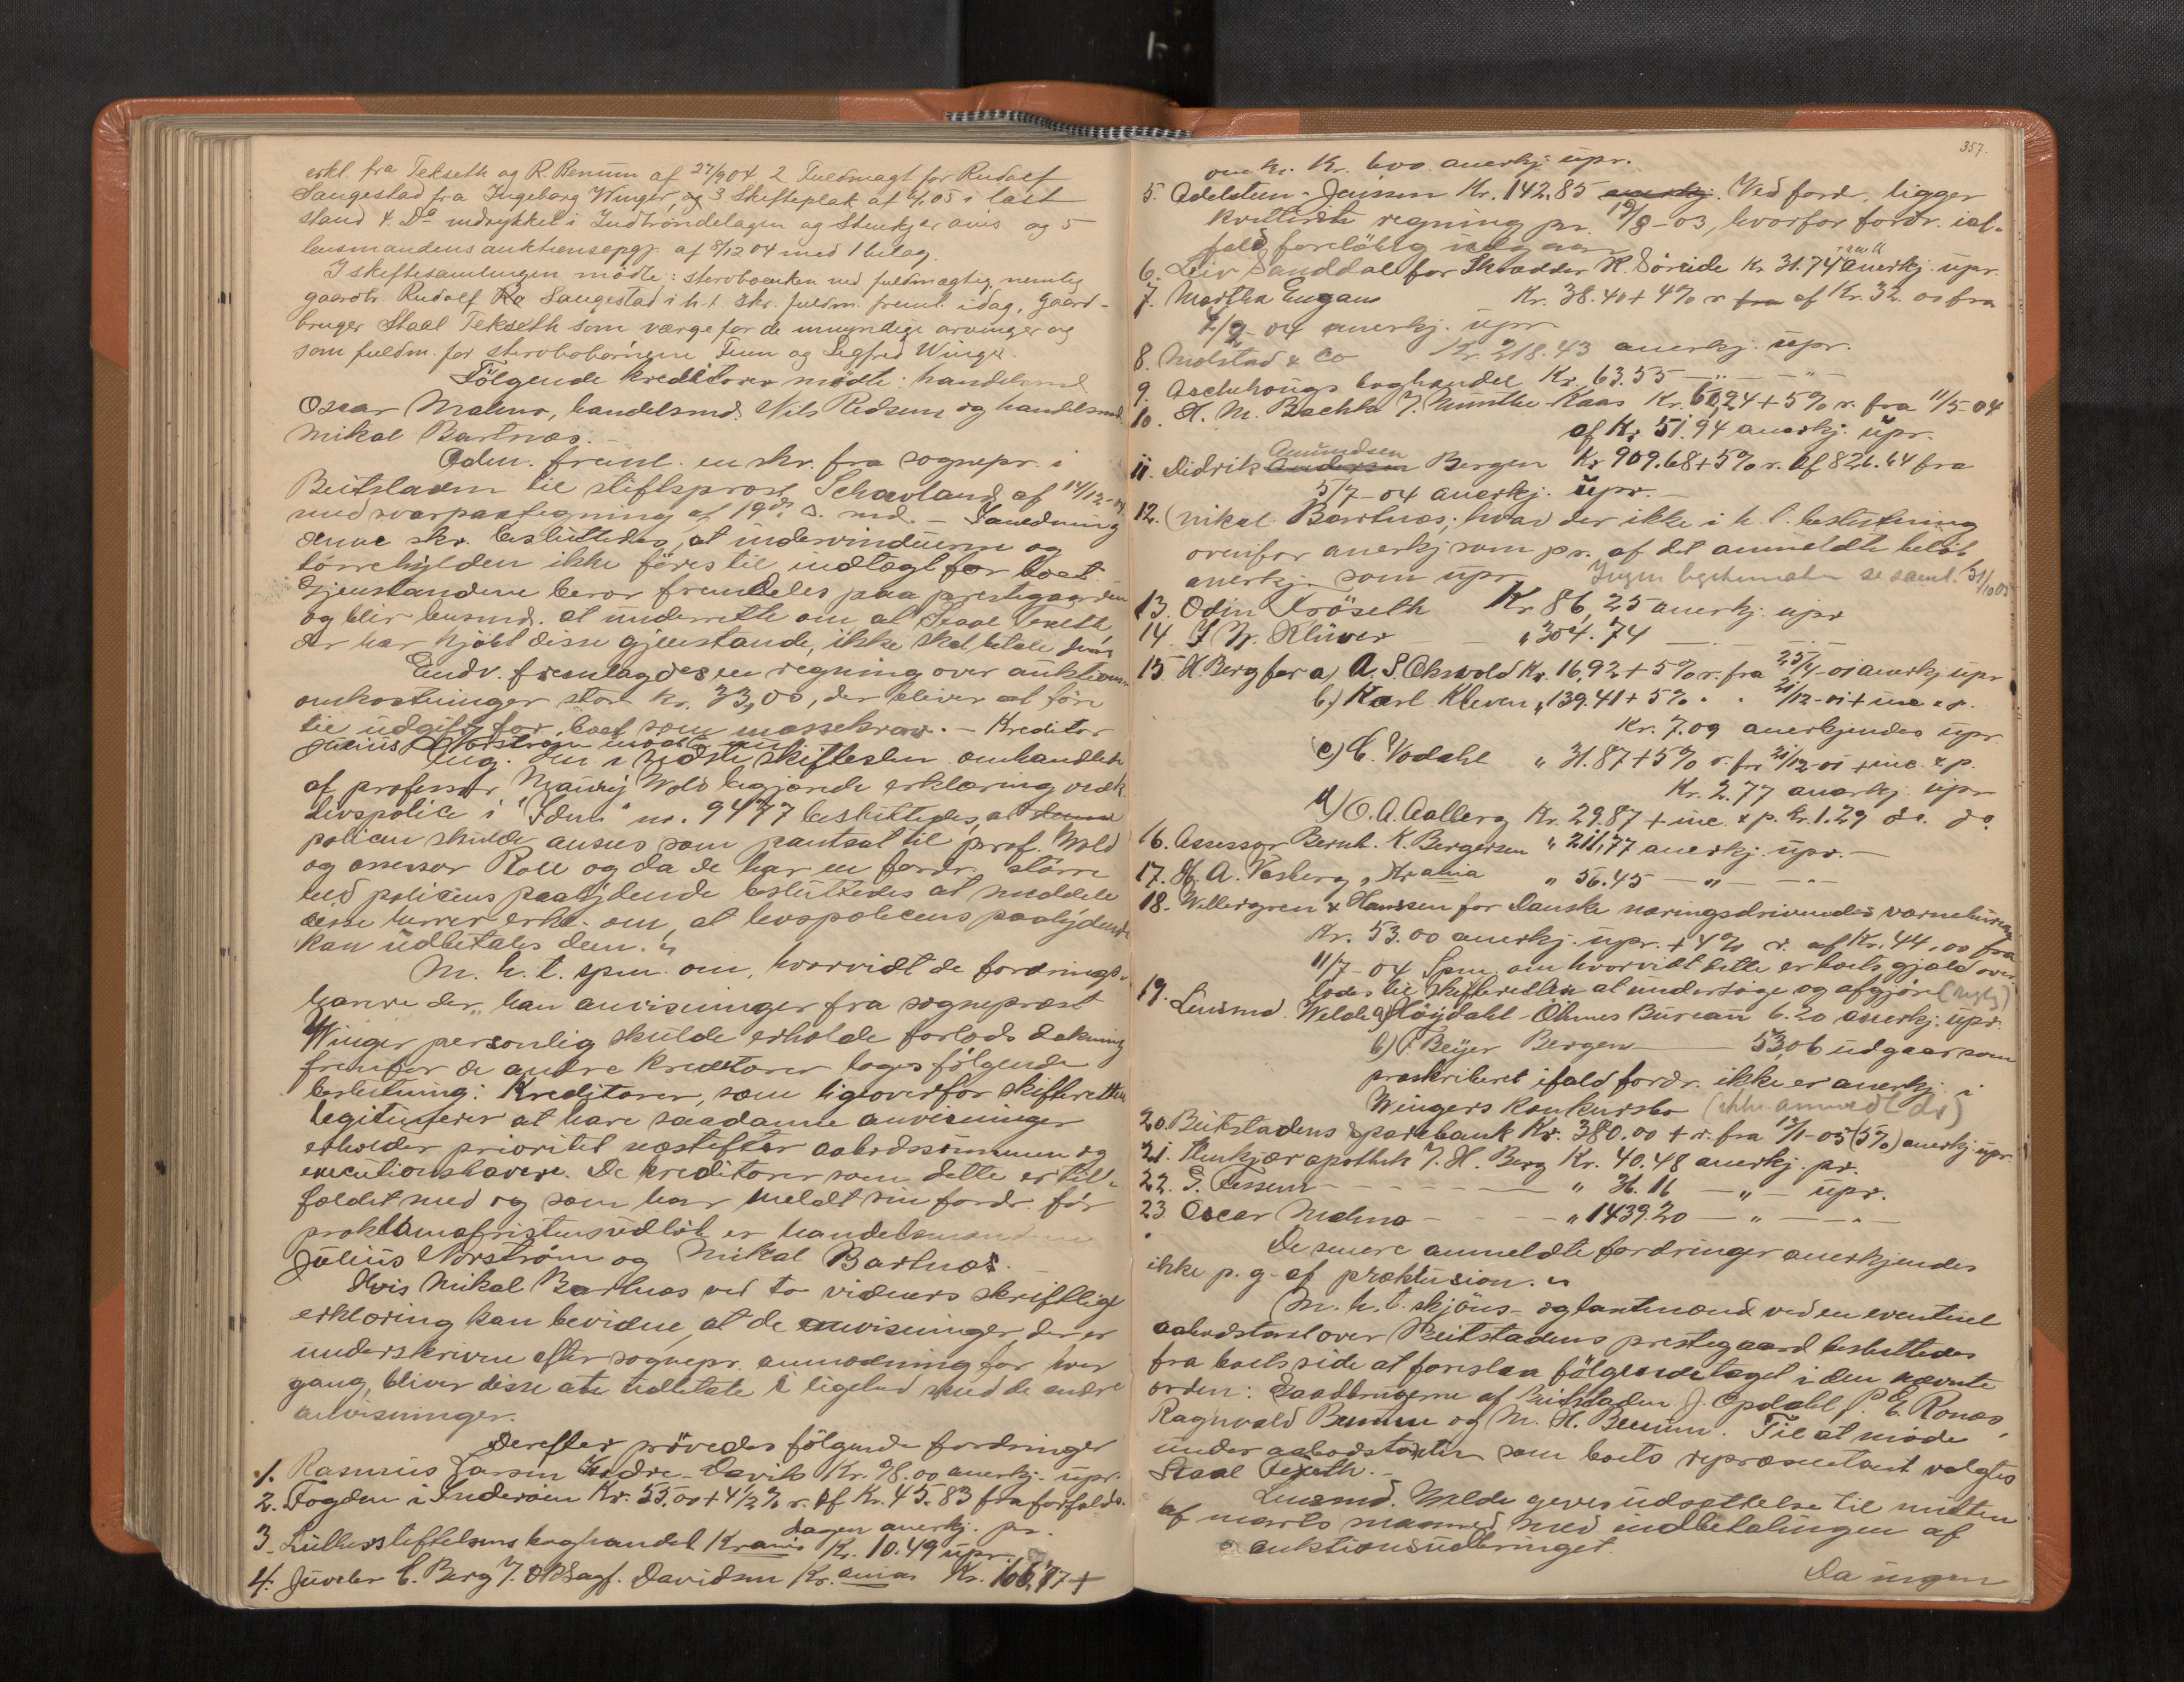 erkl. fra Tekseth og R. Benum af 27/9 04 2 Fuldmagt for Rudolf
Saugestad fra Ingeborg Winger, og 3 Skifteplak at 4/1 05 i læst
stand 4. Do indrykket i Indtröndelagen og Stenkjer avis og 5
lensmandens auktionsopgj. af 8/12 04 med 1 bilag.
I skiftesamlingen mödte: sterboenken ved fuldmægtig, nemlig
gaardbr. Rudolf Saugestad i h. t. skr. fuldm. freml. idag, gaard-
bruger Staal Tekseth som værge for de umyndige arvinger og
som fuldm. for sterbobörnene Finn og Sigfred Winger.
Følgende kreditorer mödte: handelsmd.
Oscar Malmo, handelsmd. Nils Redsem og handelsmd.
Mikal Bartnæs.
Adm. freml. en skr. fra sognepr. i
Beitstaden til stiftsprost Schavland af 14/12-04
med svarpaategning af 19de s. md. – I anledning
denne skr. besluttedes, at undervinduerne og
törrehylden ikke föres til indtægt for boet.
Gjenstandene beror fremdeles paa prestegaarden
og blir lensmd. at underrette om, at Staal Tekseth
der har kjöbt disse gjenstande, ikke skal betale dem.
Endv. fremlagdes en regning over auktions-
omkostninger stor Kr. 33,00, der bliver at före
til udgift for boet som massekrav. – Kreditor
Julius Norström mödte nu
Ang. den i sidste skiftesaml. omhandlede
af professor Maury Wold begjærede erklæring vedk.
livspolice i "Idun" no. 9477 besluttedes, at denne
policen skulde ansees som pantsat til prof. Wold
og assessor Roll og da de har en fordr. större
end policens paalydende besluttedes at meddele
disse herrer erkl. om, at livspolicens paalydende
kan udbetales dem.
M. h. t. spm. om, hvorvidt de fordrings-
havere der har anvisninger fra sogneprest
Winger personlig skulde erholde forlods dækning
fremfor de andre kreditorer toges fölgende
beslutning: Kreditorer, som ligeoverfor skifteretten
legitimerer at have saadanne anvisninger
erholder prioritet næstefter aabodssummen og
executionshavere. De kreditorer som dette er til-
fældet med og som har meldt sin fordr. för
proklamafristens udlöb er handelsmændene
Julius Norström og Mikal Bartnæs.
Hvis Mikal Bartnæs ved to vidners skriftlige
erklæring kan bevidne, at de anvisninger, der er
underskrevne efter sognepr. anmodning for hver
gang, bliver disse at udbetale i ligehed med de andre
anvisninger.
Derefter prövedes fölgende fordringer
1. Rasmus Larsen Indre-Davik Kr. 98.00 anerkj. upr.
2. Fogden i Inderöen Kr. 55.00 + 4 1/2 % r. af Kr. 45.83 fra forfalds-
dagen anerkj. pr.
3. Lutherstiftelsens boghandel Krania Kr. 10.49 upr.
4. Juveler E. Berg v. OR Sagf. Davidsen Kr.ania Kr. 166,87 +
357.
om k. Kr. 600. anerkj. upr.
5. Adelsten-Jensen Kr. 142.85 anerkj. Ved fordr. ligger
kvitteret regning pr. 19/8-03, hvorfor fordr. ial-
fald foreløbig udgaar
6. Leiv Sanddal for Skrædder K. Söreide Kr. 31.74 anerkj. upr.
7. Martha Eugan Kr. 38.40 + 4% r. fra af Kr. 32.00 fra
1/2-04 anerkj. upr.
8. Molstad & Co Kr. 218.43 anerkj. upr.
9. Aschehougs boghandel Kr. 63.55 — " — — " —
10. H. M. Bachke v. Munthe-Kaas Kr. 60,24 + 5% r. fra 11/5-04
af Kr. 51.94 anerkj. upr.
Amundsen
11. Didrik Andersen Bergen Kr 909.68 + 5% r. af 826.64 fra
5/7-04 anerkj. upr. –
12. (Mikal Bartnæs; hvad der ikke i h. t. beslutning
ovenfor anerkj som pr. af det anmeldte belöb
anerkj. som upr Ingen legitimation se saml. 31/10 05
13. Odin Fröseth Kr 86,25 anerkj. upr
14. I. N. Klüver " 304.74 — . — — . —
15. H. Berg for a) A. S. Ekswold Kr. 16,92 + 5% r. fra 25/4-01 anerkj. upr
b.) Karl Kleven " 139.41 + 5% " " 21/12-01 + inc. s. p.
Kr. 7.09 anerkjendes upr
c) E. Vodahl " 31.87 + 5% r. fra 21/12-01 + inc. s. p.
Kr. 2.77 anerkj. upr
d) O. A. Aalberg Kr. 29,87 + inc. s. p. Kr. 1.29 do. do.
16. Assessor Bernh. K. Bergersen " 211,77 anerkj. upr. –
17. H. A. Vasberg, Krania " 56.45 — " — — " —
18. Willergren & Hanssen for Danske næringsdrivendes værnebureau
Kr. 53.00 anerkj. upr. + 4% r. af Kr. 44.00 fra
11/7-04 Spm. om hvorvidt dette er boets gjæld over-
lodes til skifteretten at undersöge og afgjöre
19. Lensmd. Welde a) Höydahl-Ohmes Bureau 6.20 anerkj. upr.
b) F. Beyer Bergen — 53,06 udgaar som
præskriberet ifald fordr. ikke er anerkj. i
Wingers konkursbo (ikke anmeldt der)
20. Beitstadens sparebank Kr. 380.00 + r. fra 12/1-05 (5%) anerkj. upr.
21. Stenkjær apothek v. H. Berg Kr. 40.48 anerkj. pr.
22. S. Fessem — — — " 36.16 — " — upr.
23. Oscar Malmo — — — " 1439.20 — " — — " —
De senere anmeldte fordringer anerkjendes
ikke p. g. af præklusion.
M. h. t. skjöns- og lantmænd ved en eventuel
aabodstaxt over Beitstadens prestegaard besluttedes
fra boets side at foreslaa fölgende taget i den nævnte
orden: Gaardbrugerne af Beitstaden J. Opdahl, P. E. Ronæs,
Ragnvald Benum og M. H. Benum. Til at möde
under aabodstaxten som boets representant valgtes
Staal Tekseth. –
Lensmd. Welde gives udsættelse til midten
af marts maaned med indbetalingen af
auktionsudbringet.
Da ingen